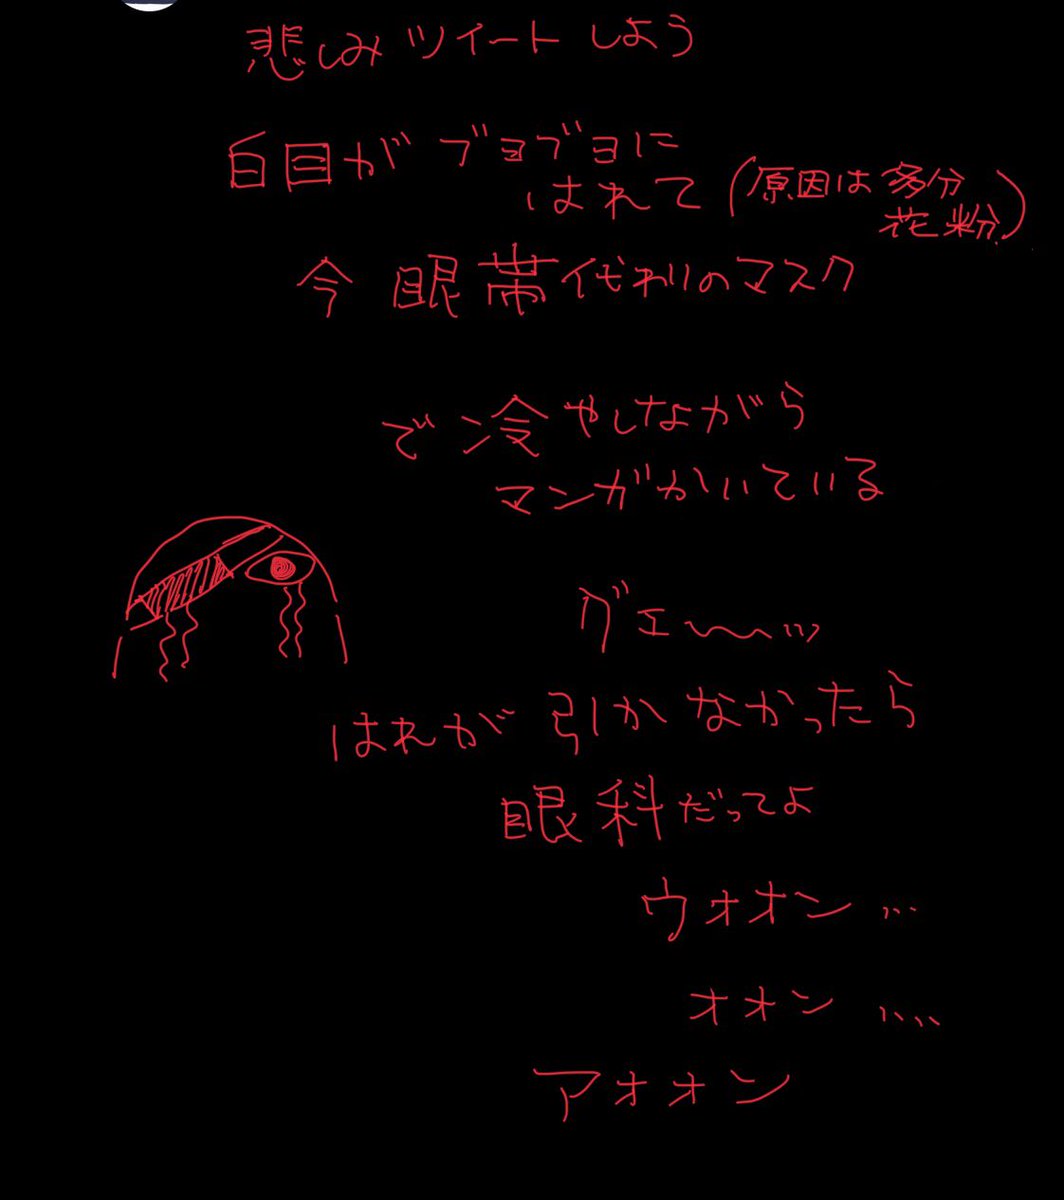 悲しみツイートしよう
白目がブヨブヨに
はれて(原因は多分
花粉)
今眼帯代わりのマスク
で冷やしながら
マンガかいている
グエ〜〜...
はれが引かなかったら
眼科だってよ
ウォオン...
オオン....
アォォン